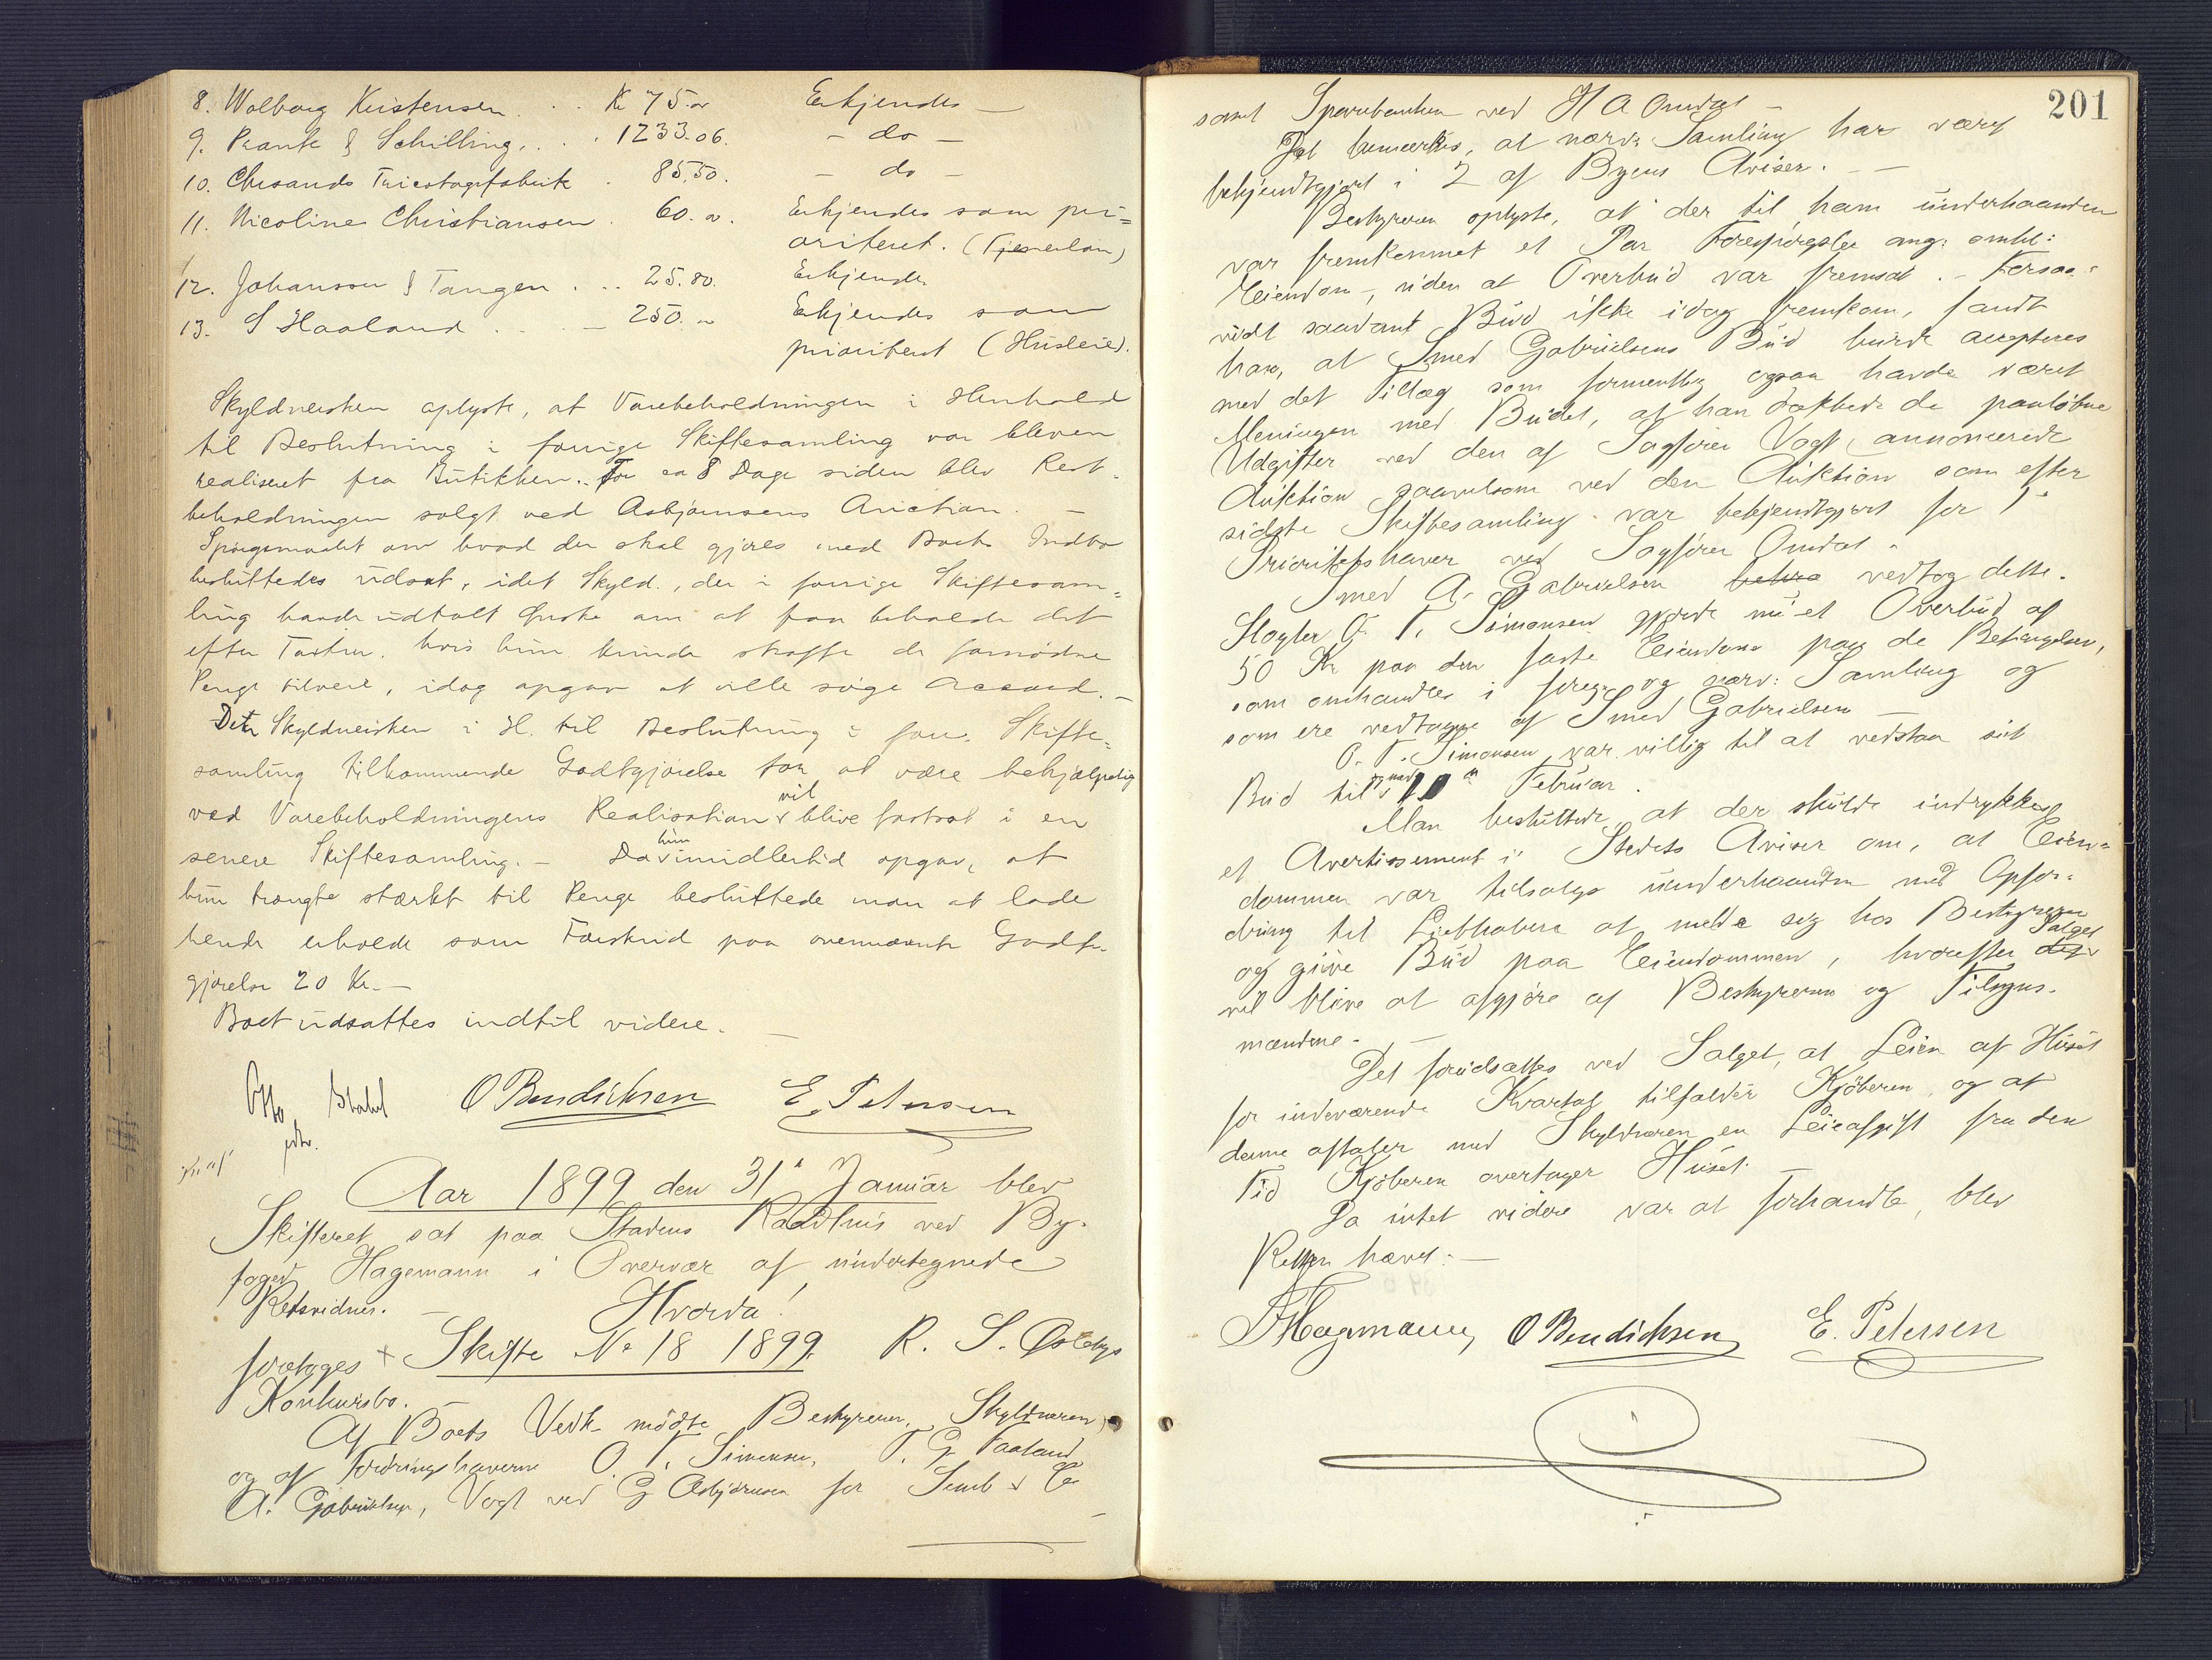 8. Walborg Kristensen . . Kr 75.00 Erkjendes —
9. Prante & Schilling. . . . 1233.06. — do —
10. Chrsands Tricotagefabrik . 85,50. — do —
11. Nicoline Christiansen . 60. 00. Erkjendes som pri=
oritert. (Tjenerløn)
12. Johanson & Tangen . . . 25.80. Erkjendes
13. S Haaland . . . — 250. 00 Erkjendes som
prioritert (Husleie).
Skyldnersken oplyste, at Varebeholdningen i Henhold
til Beslutning i forrige Skiftesamling var bleven
realiseret fra Butikken. For ca 8 Dage siden blev Rest-
beholdningen solgt ved Asbjørnsens Auction. —
Spørgsmaalet om hvad der skal gjøres med Boets Indbo
besluttedes udsat, idet Skyld., der i forrige Skiftesam=
ling havde udtalt Ønske om at faa beholde det
efter Taxten, hvis hun kunde skaffe de fornødne
Penge tilveie, idag opgav at ville søge Accord. —
Den Skyldnersken i H. til Beslutning i forr. Skifte=
samling tilkommende Godtgjørelse for at være behjælpelig
ved Varebeholdningens Realisation vil blive fastsat i en
senere Skiftesamling. — Da hun imidlertid opgav, at
hun trængte stærkt til Penge besluttede man at lade
hende erholde som Forskud paa ovennævnte Godt-
gjørelse 20 Kr. —
Boet udsattes indtil videre. —
Otto Stabel O Bendichsen E. Petersen
Aar 1899 den 31te Januar blev
Skifteret sat paa Stadens Raadhus ved By-
foged Hagemann i Overvær af undertegnede
Retsvidner. — Hvorda!
foretoges + Skifte No 18 1899. R. S. Østebys
Konkursbo.
Af Boets Vedk. mødte Bestyreren, Skyldneren,
og af Fordringshaverne O. T. Simonsen, T. G. Faaland
A. Gabrielsen, Vogt ved G Asbjørnsen for Semb & Co —
201
samt Sparebanken ved H A Omdal —
Det bemærkes, at nærv: Samling har været
bekjendtgjort i 2 af Byens Aviser. —
Bestyreren oplyste, at der til ham underhaanden
var fremkommet et Par Forespørgsler ang: omhl:
Eiendom —, uden at Overbud var fremsat. — Forsaa-
vidt saadant Bud ikke idag fremkom, fandt
han, at Smed Gabrielsens Bud burde accepteres
med det Tillæg som formentlig ogsaa havde været
Meningen med Budet, at han dækkede de paaløbne
Udgifter ved den af Sagfører Vogt annoncerede
Auktion saavelsom ved den Auktion som efter
sidste Skiftesamling var bekjendtgjort for 1ste
Prioritetshaver ved Sagfører Omdal.
Smed A. Gabrielsen vedtog dette.
Slagter O. T. Simonsen gjorde nu et Overbud af
50 Kr paa den faste Eiendom paa de Betingelser,
som omhandles i foreg: og nærv: Samling og
som ere vedtagne af Smed Gabrielsen —
O. T. Simonsen var villig til at vedstaa sit
Bud til og med 10de Februar.
Man besluttede, at der skulde indrykkes
et Avertissement i Stedets Aviser om, at Eien=
dommen var tilsalgs underhaanden med Opfor-
dring til Liebhabere at melde sig hos Bestyreren
og give Bud paa Eiendommen, hvorefter det Salget
vil blive at afgjøre af Bestyreren og Tilsyns-
mændene. —
Det forudsættes ved Salget, at Leien af Huset
for indeværende Kvartal tilfalder Kjøberen, og at
denne aftaler med Skyldneren en Leieafgift fra den
Tid Kjøberen overtager Huset. —
Da intet videre var at forhandle, blev
Retten hævet. —
Hagemann O Bendichsen E. Petersen